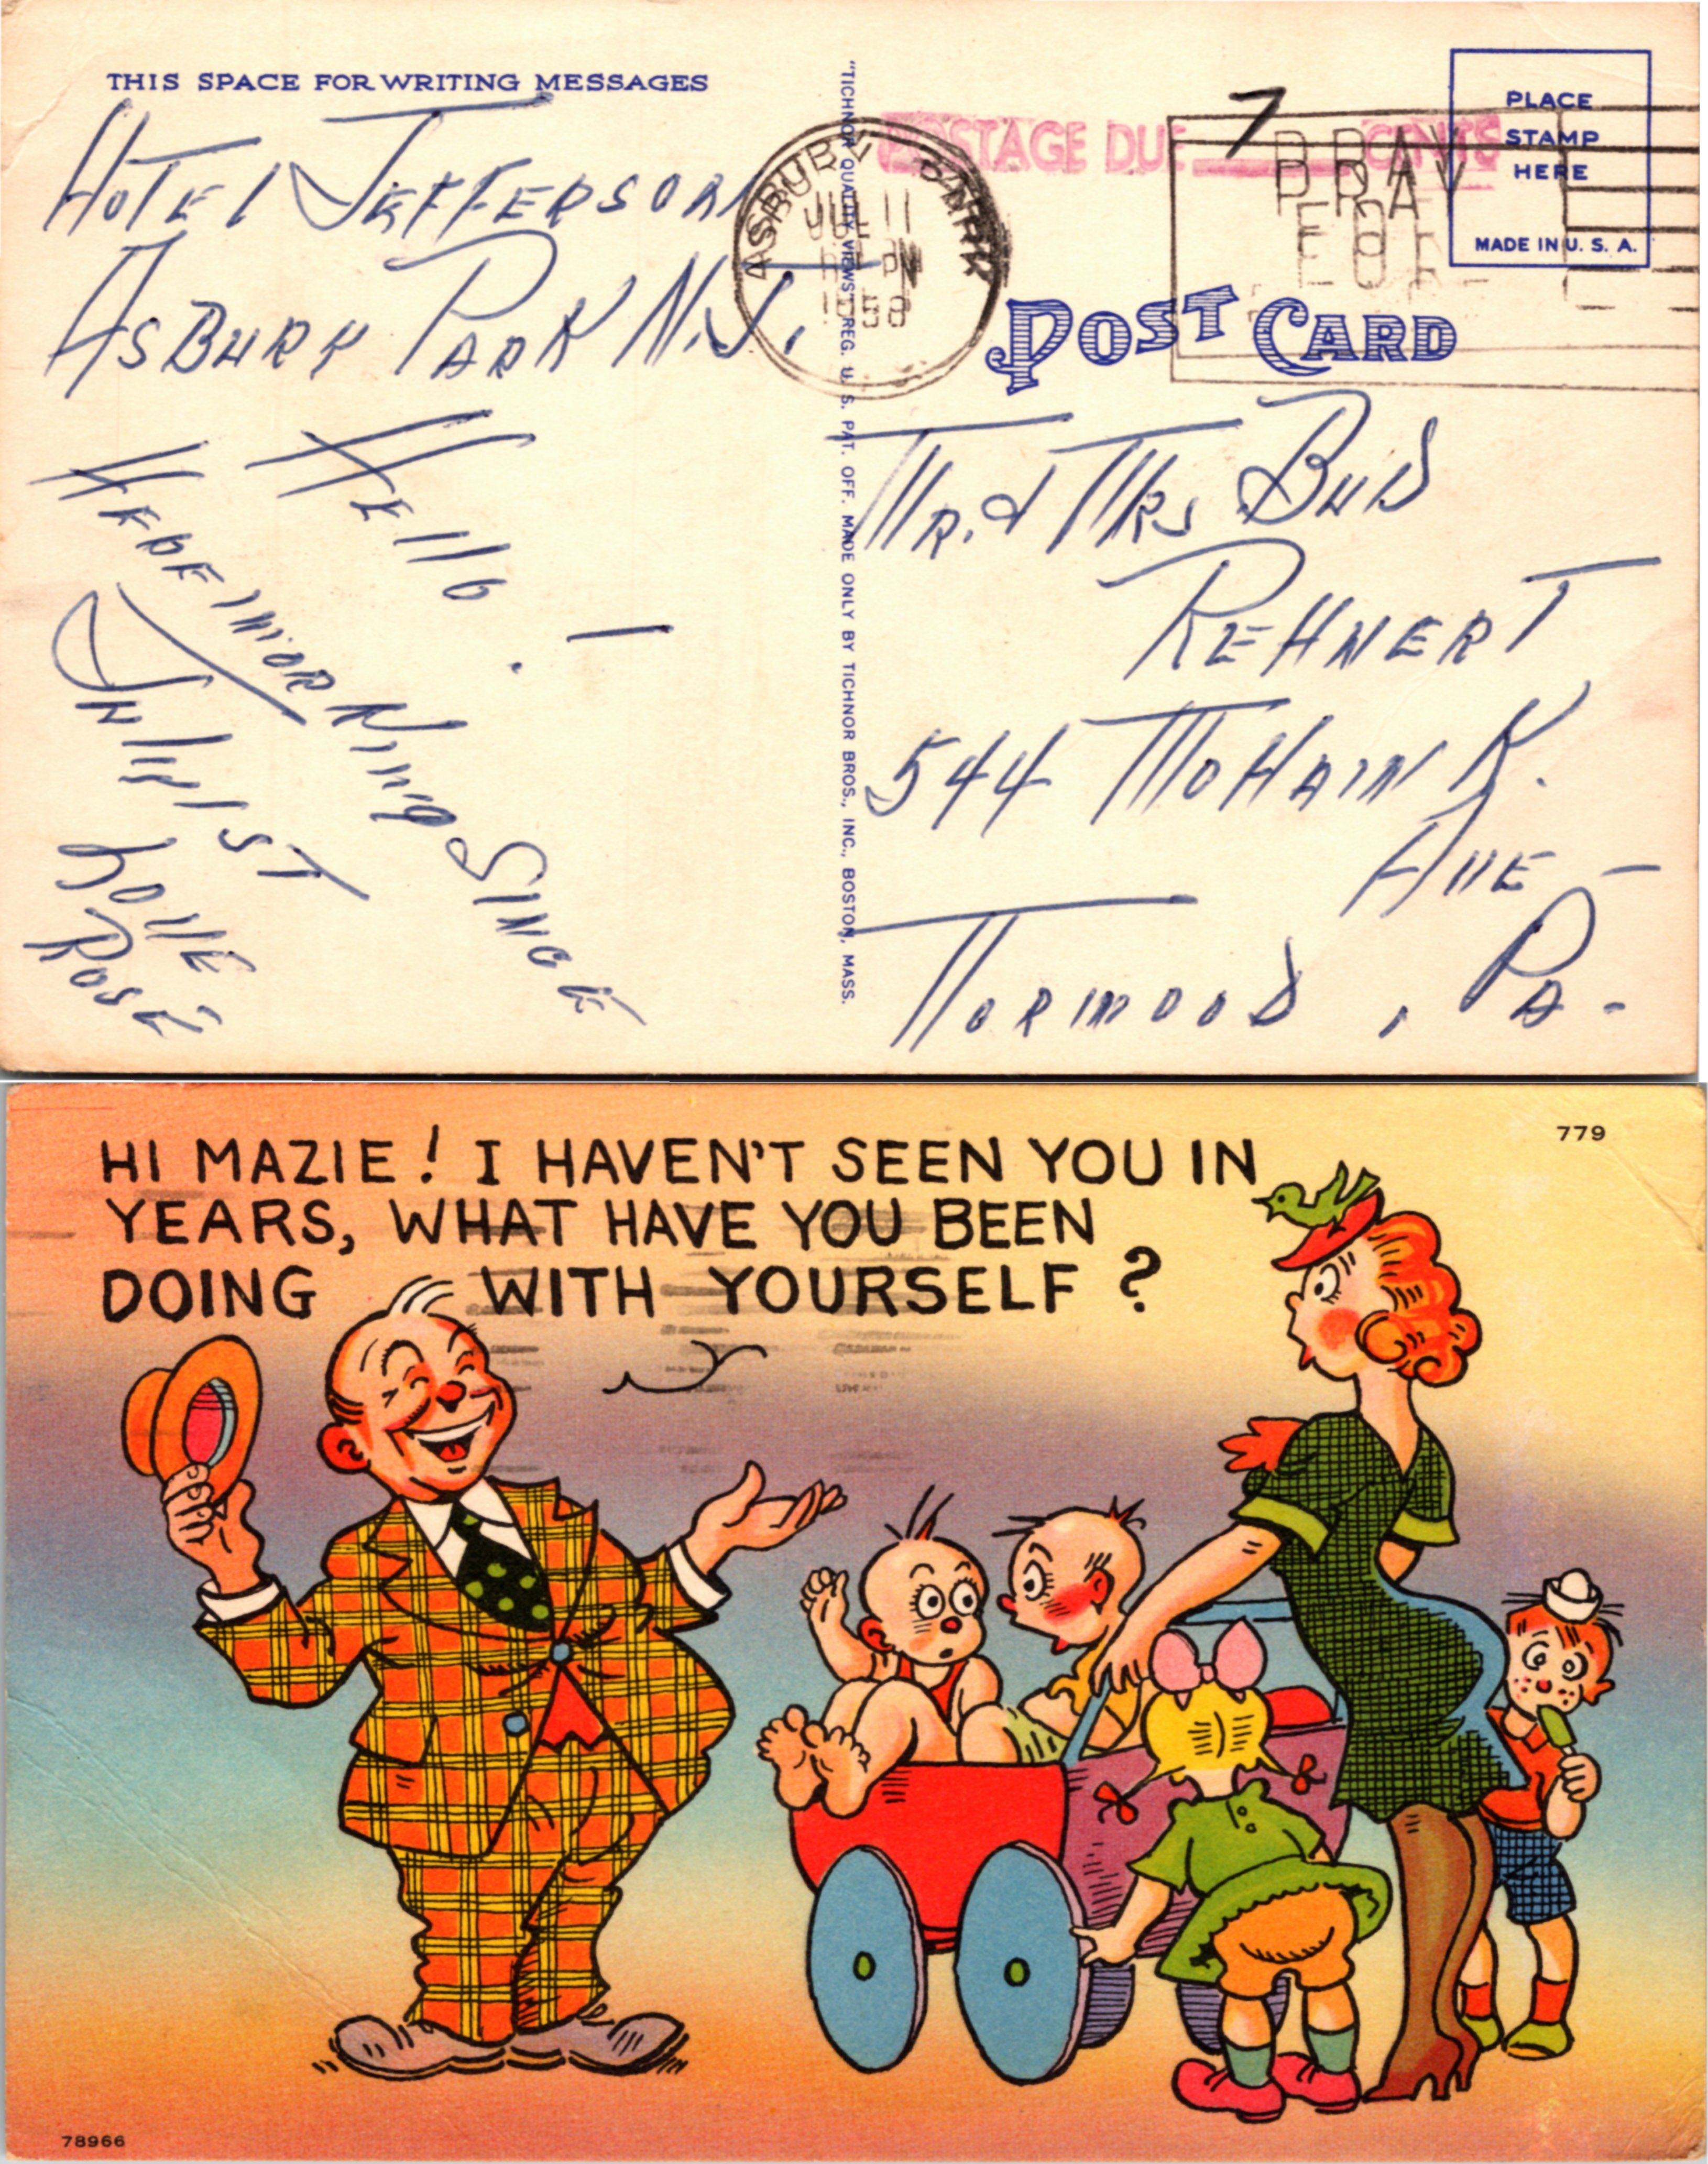 THIS SPACE FOR WRITING MESSAGES
PLACE
STAMP
HERE
MADE IN U. S. A.
POSTAGE DUE 7 CENTS
ASBURY PARK
JUL 11
PM
1958
PRAY
FOR
POST CARD
"TICHNOR QUALITY VIEWS" REG. U. S. PAT. OFF. MADE ONLY BY TICHNOR BROS., INC., BOSTON, MASS.
HOTEl JEFFERSON
ASBURY PARK N.J.
HEllo!
HERE
SINCE
JUly 1ST
LOVE
ROSE
MR. & MRS BUD
REHNERT
544 MOHAWK
AVE -
NORWOOD, PA.
HI MAZIE! I HAVEN'T SEEN YOU IN
YEARS, WHAT HAVE YOU BEEN
DOING WITH YOURSELF?
779
78966